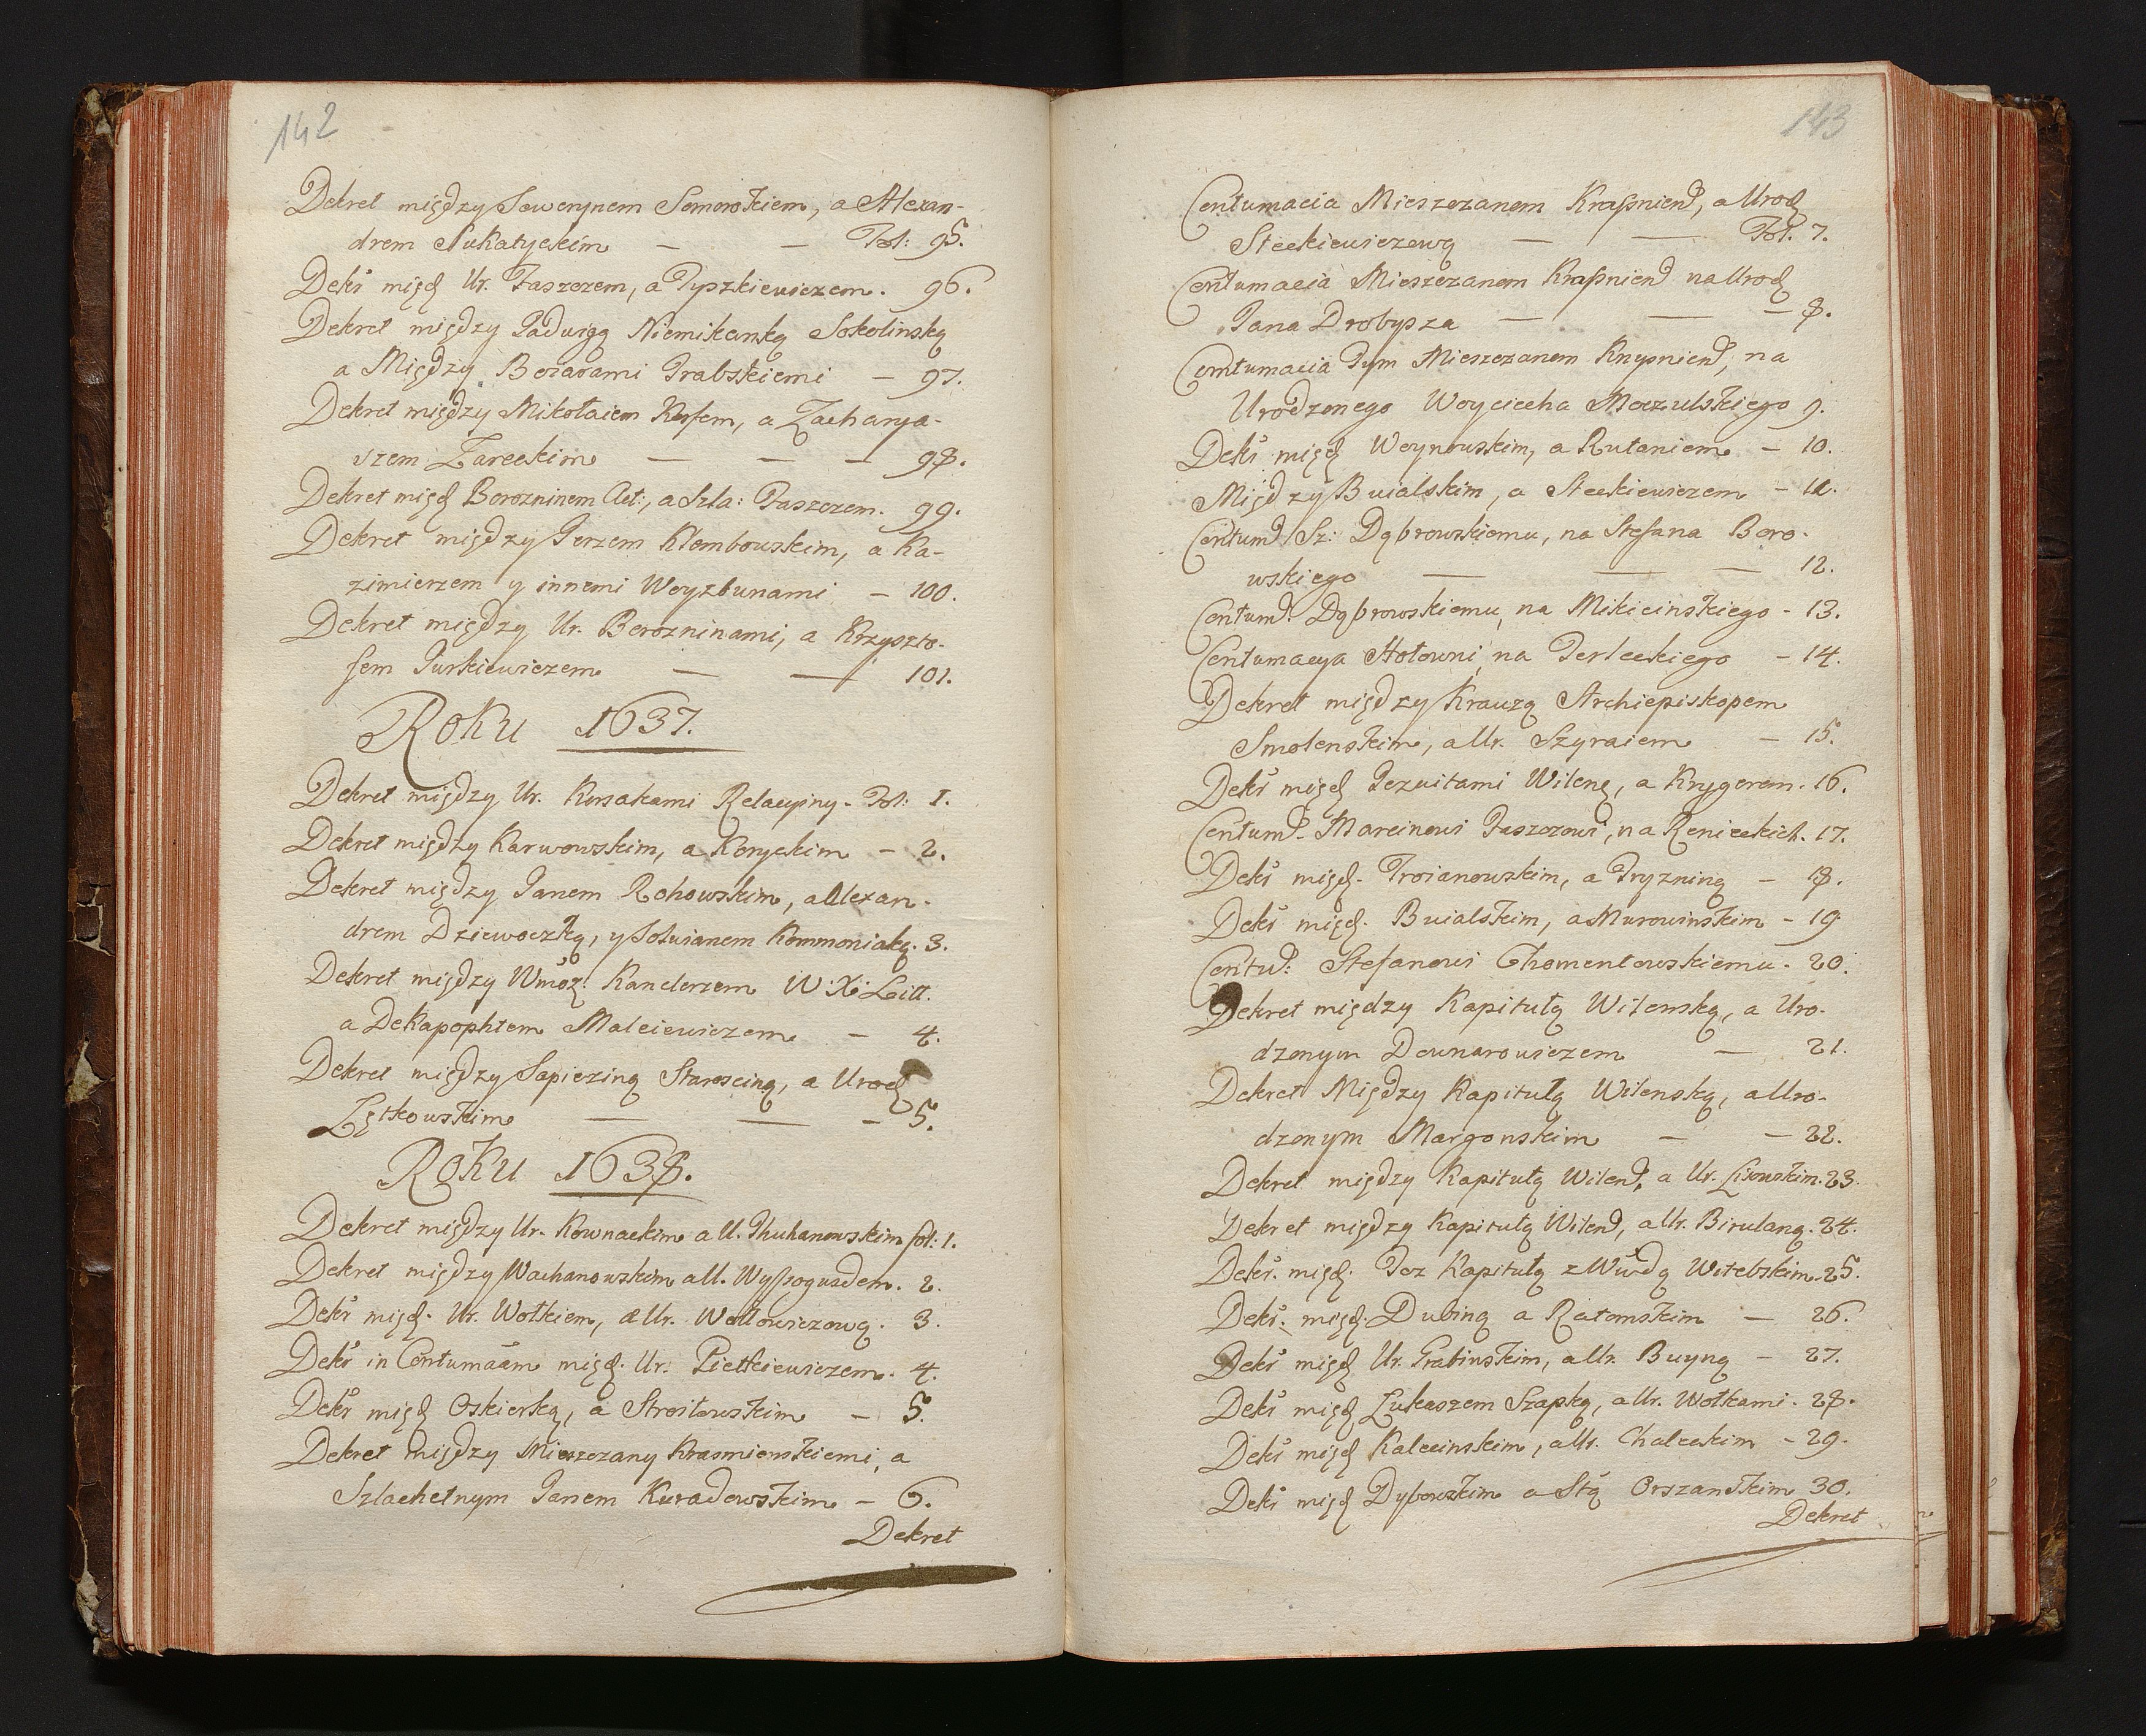 142
Dekret między Sewerynem Somorokiem, a Alexan-
drem Sukatyckim — — Fol: 95.
Dekr̃ międ Ur. Faszczem, a Tyszkiewiczem. 96.
Dekret między Jadwigą Niemikanką Sokolinską
a Między Bozarami Grabskiemi — 97.
Dekret między Mikołaiem Korfem, a Zacharya-
szem Zareckim — — — 98.
Dekret międ Borozninem Act:, a Szla: Paszczem. 99.
Dekret między Jerzem Klembowskim, a Ka-
zimierzem y innemi Woyzbunami — 100.
Dekret między Ur. Borozninami, a Krzyszto-
fem Jurkiewiczem — — 101.
Roku 1637.
Dekret między Ur. Korsakami Relacyiny. Fol: 1.
Dekret między Karwowskim, a Koryckim — 2.
Dekret między Janem Rohowskim, a Alexan-
drem Dziewoczką, y Soluianem Kommoniaką. 3.
Dekret między Wmoz: Kanclerzem W: X: Litt.
a Dekapophtem Maleiewiczem — 4.
Dekret między Sapieziną Staroscing, a Urod
Zętkowskim — — — 5.
Roku 1638.
Dekret między Ur. Kownackim a U. Thuhanowskim fol: 1.
Dekret między Wachanowskim a U. Wyssogurdem. 2.
Dekr̃ międ. Ur. Wołkiem, a Ur. Wołłowiczową. 3.
Dekr̃ in Contumaãm międ. Ur: Pietkiewiczem. 4.
Dekr̃ międ Oskierką, a Stroiłowskim — 5.
Dekret między Mieszczany Krasmienskiemi, a
Szlachetnym Janem Kuradowskim — 6.
Dekret
143
Contumacia Mieszczanom Krassnien, a Urod
Steckiewiczową — — Fol. 7.
Contumacia Mieszczanom Krassnien na Urod
Jana Drobysza — — — 8.
Contumacia Tym Mieszczanom Knysnien, na
Urodzonego Woyciecha Moczulskiego 9.
Dekr̃ międ Woynowskim, a Rutaniem — 10.
Między Buialskim, a Steckiewiczem — 11.
Contum Sz: Dąbrowskiemu, na Stefana Boro-
wskiego — — — 12.
Contum. Dąbrowskiemu, na Mikicinskiego - 13.
Contumacya Hołowni, na Terleckiego - 14.
Dekret między Krauzą Archiepiskopem
Smolenskim, a Ur. Szyraiem — 15.
Dekr̃ międ Jezuitami Wilenę, a Krygerem. 16.
Contum. Marcinowi Paszczowi, na Renieckich. 17.
Dekr̃ międ. Troianowskim, a Tryzniną — 18.
Dekr̃ międ. Buialskim, a Murowinskim - 19
Contu: Stefanowi Chomentowskiemu. 20.
Dekret między Kapitułą Wilenską, a Uro-
dzonym Downarowiczem — 21.
Dekret Między Kapitułą Wilenską, a Uro-
dzonym Margonskim — — 22.
Dekret między Kapitułą Wilen, a Ur. Lisowskim. 23.
Dekret między Kapitułą Wilen, a Ur. Birulaną. 24.
Dekr̃. międ. Toz Kapitułą z Wwdą Witebskim. 25.
Dekr̃. międ. Dubing a Ratomskim — 26.
Dekr̃ międ Ur. Grabinskim, a Ur. Buyną — 27.
Dekr̃ międ Łukaszem Szapką, a Ur. Wołkami. 28.
Dekr̃ międ Kalecinskim, a Ur. Chaleckim - 29.
Dekr̃ międ Dybowskim a Stą Orszanskim 30.
Dekret